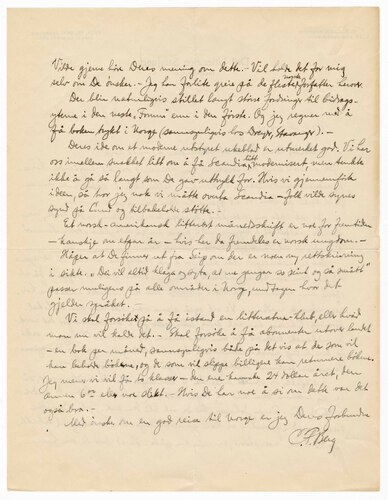 Vilde gjerne höre Deres mening om dette. - Vil holde det for mig
selv om De önsker. - Jeg har forlite greie på de fleste forfatter herover.
Der blir naturligvis stillet langt större fordringer til bidrag-
yterne i den neste "Tömmer" enn i den förste. Og jeg regner med å
få boken trykt i Norge (sannsynligvis hos Dreyer, Stavanger). -
Deres ide om et moderne utstyret ukeblad er utmerket god. Vi har
oss imellem snakket litt om å få Scandia litt modernisert, men tenkte
ikke å gå så langt som De gav uttrykk for. Hvis vi gjennemfirte
ideen, så tror jeg nok vi måtte ombe Scandia - folk vilde synes
synd på Lund og tilbakeholde stötte. -
Et norsk-amerikansk litterært månedskrift er nok for fremtiden
- kanskje om et par år - hvis her da fremdeles er norsk ungdom. -
Håper at De finner ut fra Siip om der er noen ny rettskrivning
i sikte. "Du vil altid klaga og syta, at me gjenger so seint og så smått"
passer muligens på alle områder i Norge, undtagen hvor det
gjelder språket. -
Vi skal forsöke på å få istand en litteratur-klub, eller hvad
man nu vil kalde det. - Skal forsöke å få abonnenter utover landet
- en bok per måned, sannsynligvis både på det vis at de som vil
kan beholde bökene, og de som vil slippe billigere kan returnere bökene.
Jeg mener vi vil få to klasser - den ene kanske 24 dollars året, den
annen 6 eller noe slikt. - Hvis De har noe å si om dette var det
også bra. -
Med önske om en god reise til Norge er jeg Deres forbundne
C. F. Berg